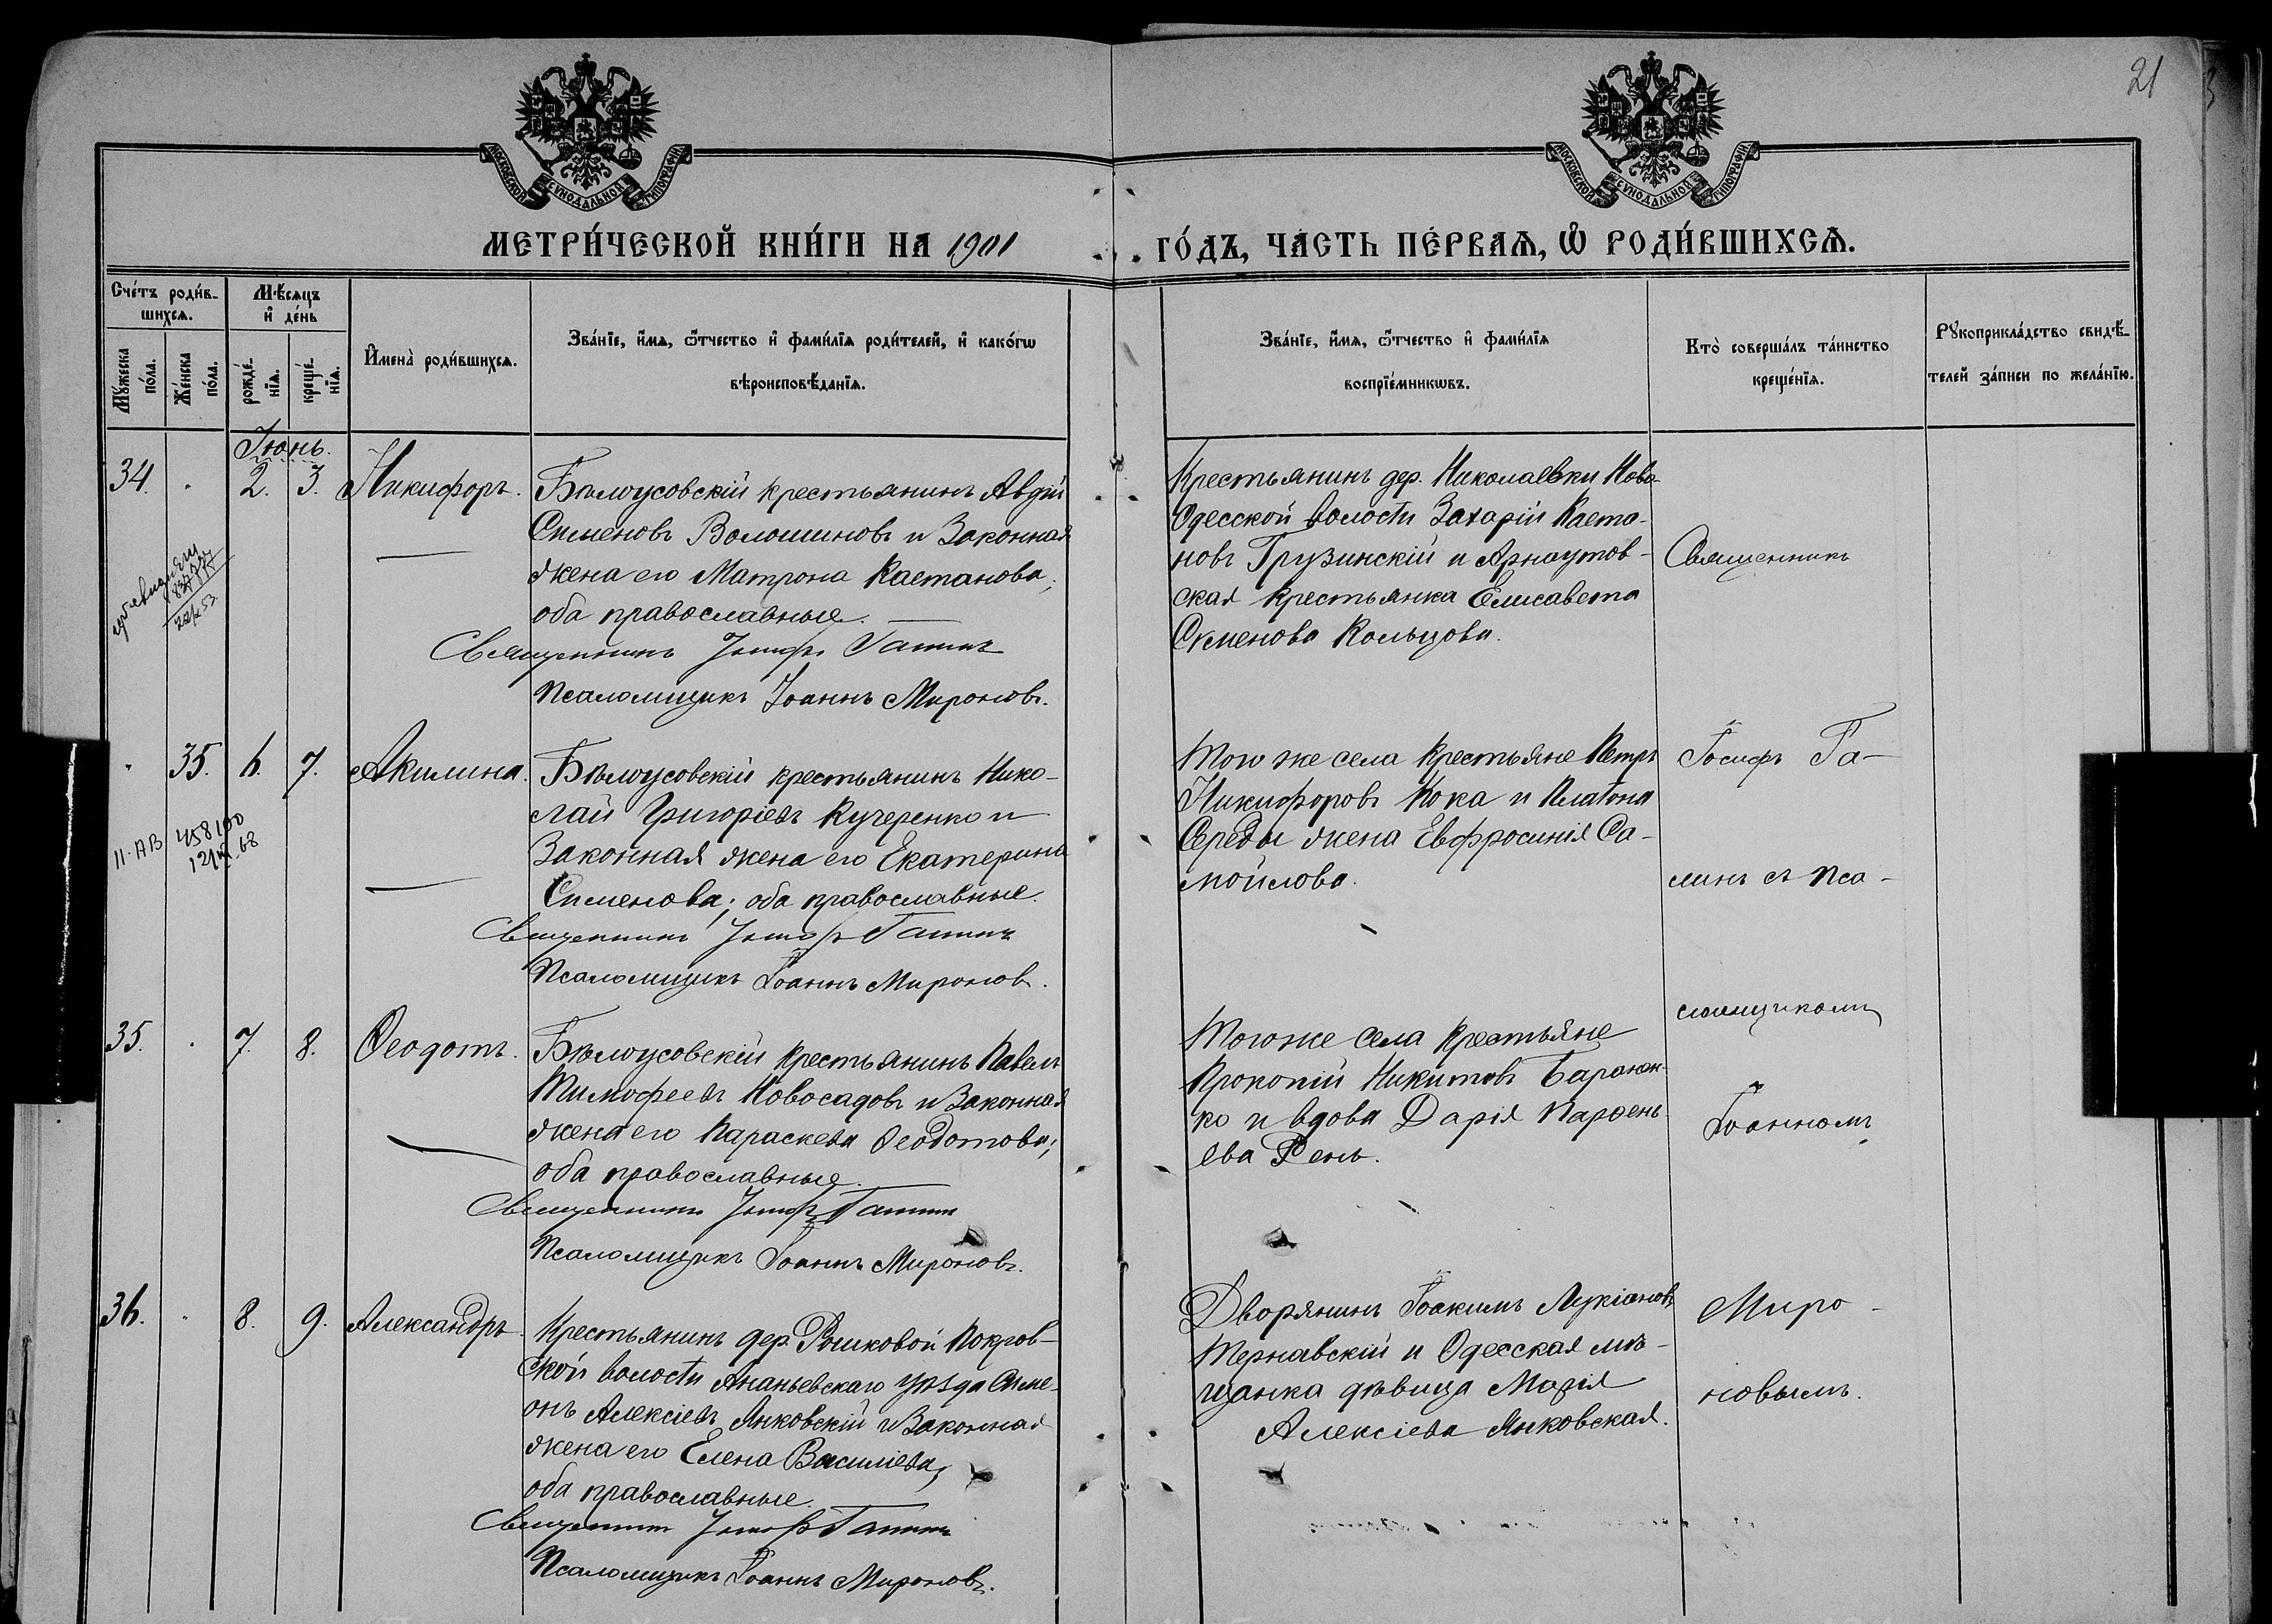 21
МОСКОВСКОЙ СѴНОДАЛЬНОЙ ТИПОГРАФІИ
МОСКОВСКОЙ СѴНОДАЛЬНОЙ ТИПОГРАФІИ
МЕТРИ́ЧЕСКОЙ КНИ́ГИ НА 1901 ГО́ДЪ, ЧА́СТЬ ПЕ́РВАѦ, Ѡ РОДИ́ВШИХСѦ.
Сче́тъ роди́в-
шихсѧ.
Мꙋ́жеска по́ла.
Же́нска по́ла.
Мѣ́сѧцъ
и҆ де́нь
рожде́-
нїѧ.
креще́-
нїѧ.
И҆мена̀ роди́вшихсѧ.
Зва́нїе, и҆́мѧ, ѻ҆́тчество и҆ фами́лїѧ роди́телей, и҆ како́гѡ
вѣроисповѣ́данїѧ.
Зва́нїе, и҆́мѧ, ѻ҆́тчество и҆ фами́лїѧ
воспрїе́мникѡвъ.
Кто̀ соверша́лъ та́инство
креще́нїѧ.
Рꙋкоприкла́дство свидѣ́-
телей за́писи по жела́нїю.
Іюнь.
34. 2. 3. Никифоръ.
Бѣлоусовскій крестьянинъ Авдій
Симеоновъ Волошиновъ и законная
жена его Матрона Каетанова;
оба православные.
Священникъ Іосифъ Галинъ
Псаломщикъ Іоаннъ Мироновъ.
Крестьянинъ дер. Николаевки Ново-
Одесской волости Захарій Каета-
новъ Грузинскій и Арнаутов-
ская крестьянка Елисавета
Семенова Кольцова.
Священникъ
35. 6. 7. Акилина.
11-АВ 458100
Бѣлоусовскій крестьянинъ Нико-
лай Григоріевъ Кучеренко и
законная жена его Екатерина
Симеонова; оба православные.
Священникъ Іосифъ Галинъ
Псаломщикъ Іоаннъ Мироновъ.
Того же села крестьяне Петръ
Никифоровъ Кока и Платона
Середы жена Евфросинія Са-
мойлова.
Іосифъ Га-
линъ съ пса-
35. 7. 8. Ѳеодотъ.
Бѣлоусовскій крестьянинъ Павелъ
Тимофеевъ Новосадовъ и законная
жена его Параскева Ѳеодотова;
оба православные.
Священникъ Іосифъ Галинъ
Псаломщикъ Іоаннъ Мироновъ.
Того же села крестьяне
Прокопій Никитовъ Баранен-
ко и вдова Дарія Парѳень-
ева Рень.
ломщикомъ
Іоанномъ
36. 8. 9. Александръ.
Крестьянинъ дер. Рошковой Покров-
ской волости Ананьевскаго уѣзда Симе-
онъ Алексіевъ Янковскій и законная
жена его Елена Василіева,
оба православные.
Священникъ Іосифъ Галинъ
Псаломщикъ Іоаннъ Мироновъ.
Дворянинъ Іоакимъ Лукіановъ
Тернавскій и Одесская мѣ-
щанка дѣвица Марія
Алексіева Янковская.
Миро-
новымъ.